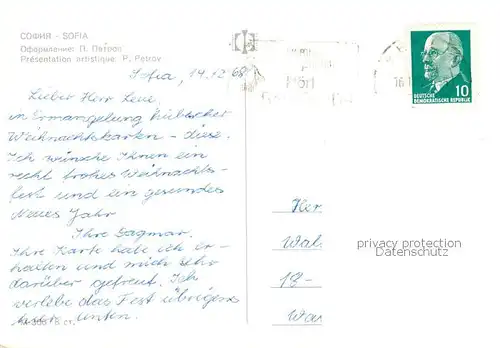 СОФИЯ - SOFIA
Оформление: П. Петров
Présentation artistique: P. Petrov
Sofia, 14.12.68
Lieber Herr Leue,
in Ermangelung hübscher
Weihnachtskarten – diese.
Ich wünsche Ihnen ein
recht frohes Weihnachts-
fest und ein gesundes
Neues Jahr
Ihre Dagmar.
Ihre Karte habe ich er-
halten und mich sehr
darüber gefreut. Ich
verlebe das Fest übrigens
hier unten.
10
DEUTSCHE
DEMOKRATISCHE REPUBLIK
Her
Wal
privacy protection
Datenschutz
18-
War